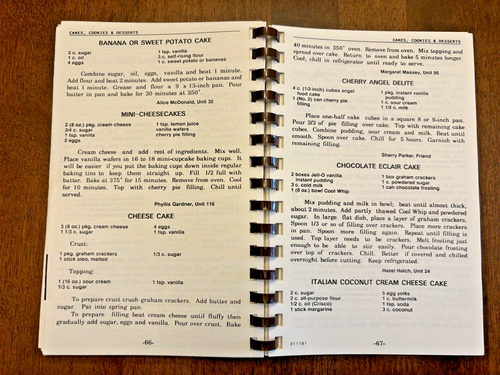 CAKES, COOKIES & DESSERTS
BANANA OR SWEET POTATO CAKE
2 c. sugar
1 c. oil
4 eggs
1 tsp. vanilla
3 c. self-rising flour
1 c. sweet potato or bananas
Combine sugar, oil, eggs, vanilla and beat 1 minute.
Add flour and beat 2 minutes. Add sweet potato or bananas and
beat 1 minute. Grease and flour a 9 x 13-inch pan. Pour
batter in pan and bake for 30 minutes at 350°.
Alice McDonald, Unit 32
MINI-CHEESECAKES
2 (8 oz.) pkg. cream cheese
3/4 c. sugar
1 tsp. vanilla
2 eggs
1 tsp. lemon juice
vanilla wafers
cherry pie filling
Cream cheese and add rest of ingredients. Mix well.
Place vanilla wafers in 16 to 18 mini-cupcake baking cups. It
will be easier if you put the baking cups down inside regular
baking tins to keep them straight up. Fill 1/2 full with
batter. Bake at 375° for 15 minutes. Remove from oven. Cool
for 10 minutes. Top with cherry pie filling. Chill until
served.
Phyllis Gardner, Unit 116
CHEESE CAKE
3 (8 oz.) pkg. cream cheese
1 1/3 c. sugar
4 eggs
1 tsp. vanilla
Crust:
1 pkg. graham crackers
1 stick oleo, melted
1/3 c. sugar
Topping:
1 (16 oz.) sour cream
1/3 c. sugar
1 tsp. vanilla
To prepare crust crush graham crackers. Add butter and
sugar. Pat into spring pan.
To prepare filling beat cream cheese until fluffy then
gradually add sugar, eggs and vanilla. Pour over crust. Bake
-66-
CAKES, COOKIES & DESSERTS
40 minutes in 350° oven. Remove from oven. Mix topping and
spread over cake. Return to oven and bake 5 minutes longer.
Cool; chill in refrigerator until ready to serve.
Margaret Massey, Unit 95
CHERRY ANGEL DELITE
4 c. (1/2-inch) cubes angel
food cake
1 (No. 2) can cherry pie
filling
1 pkg. instant vanilla
pudding
1 c. sour cream
1 1/2 c. milk
Place one-half cake cubes in a square 8 or 9-inch pan.
Pour 2/3 of pie filling over cake. Top with remaining cake
cubes. Combine pudding, sour cream and milk. Beat until
smooth. Spoon over cake. Chill for 5 hours. Garnish with
remaining filling.
Sherry Parker, Friend
CHOCOLATE ECLAIR CAKE
2 boxes Jell-O vanilla
instant pudding
3 c. cold milk
1 (8 oz.) bowl Cool Whip
1 box graham crackers
1 c. powdered sugar
1 can chocolate frosting
Mix pudding and milk in bowl; beat until almost thick,
about 2 minutes. Add partly thawed Cool Whip and powdered
sugar. In large flat dish, place a layer of graham crackers.
Spoon 1/3 or so of filling over crackers. Place more crackers
in pan. Spoon more filling again. Repeat until filling is
used. Top layer needs to be crackers. Melt frosting just
enough to be able to stir easily. Pour chocolate frosting
over top of crackers. Chill. Better if covered and chilled
overnight before cutting. Keep refrigerated.
Hazel Hatch, Unit 24
ITALIAN COCONUT CREAM CHEESE CAKE
2 c. sugar
2 c. all-purpose flour
1/2 c. oil (Crisco)
1 stick margarine
5 egg yolks
1 c. buttermilk
1 tsp. soda
3 c. coconut
-67-